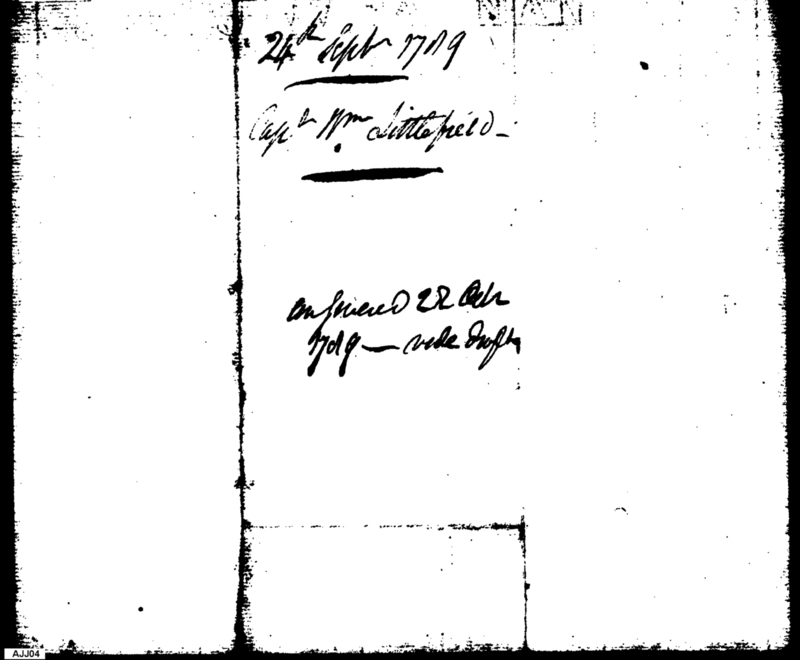 24th Septr 1789
Capt Wm Littlefield -
answered 22 Octr
1789 — vide Drafts
AJJ04